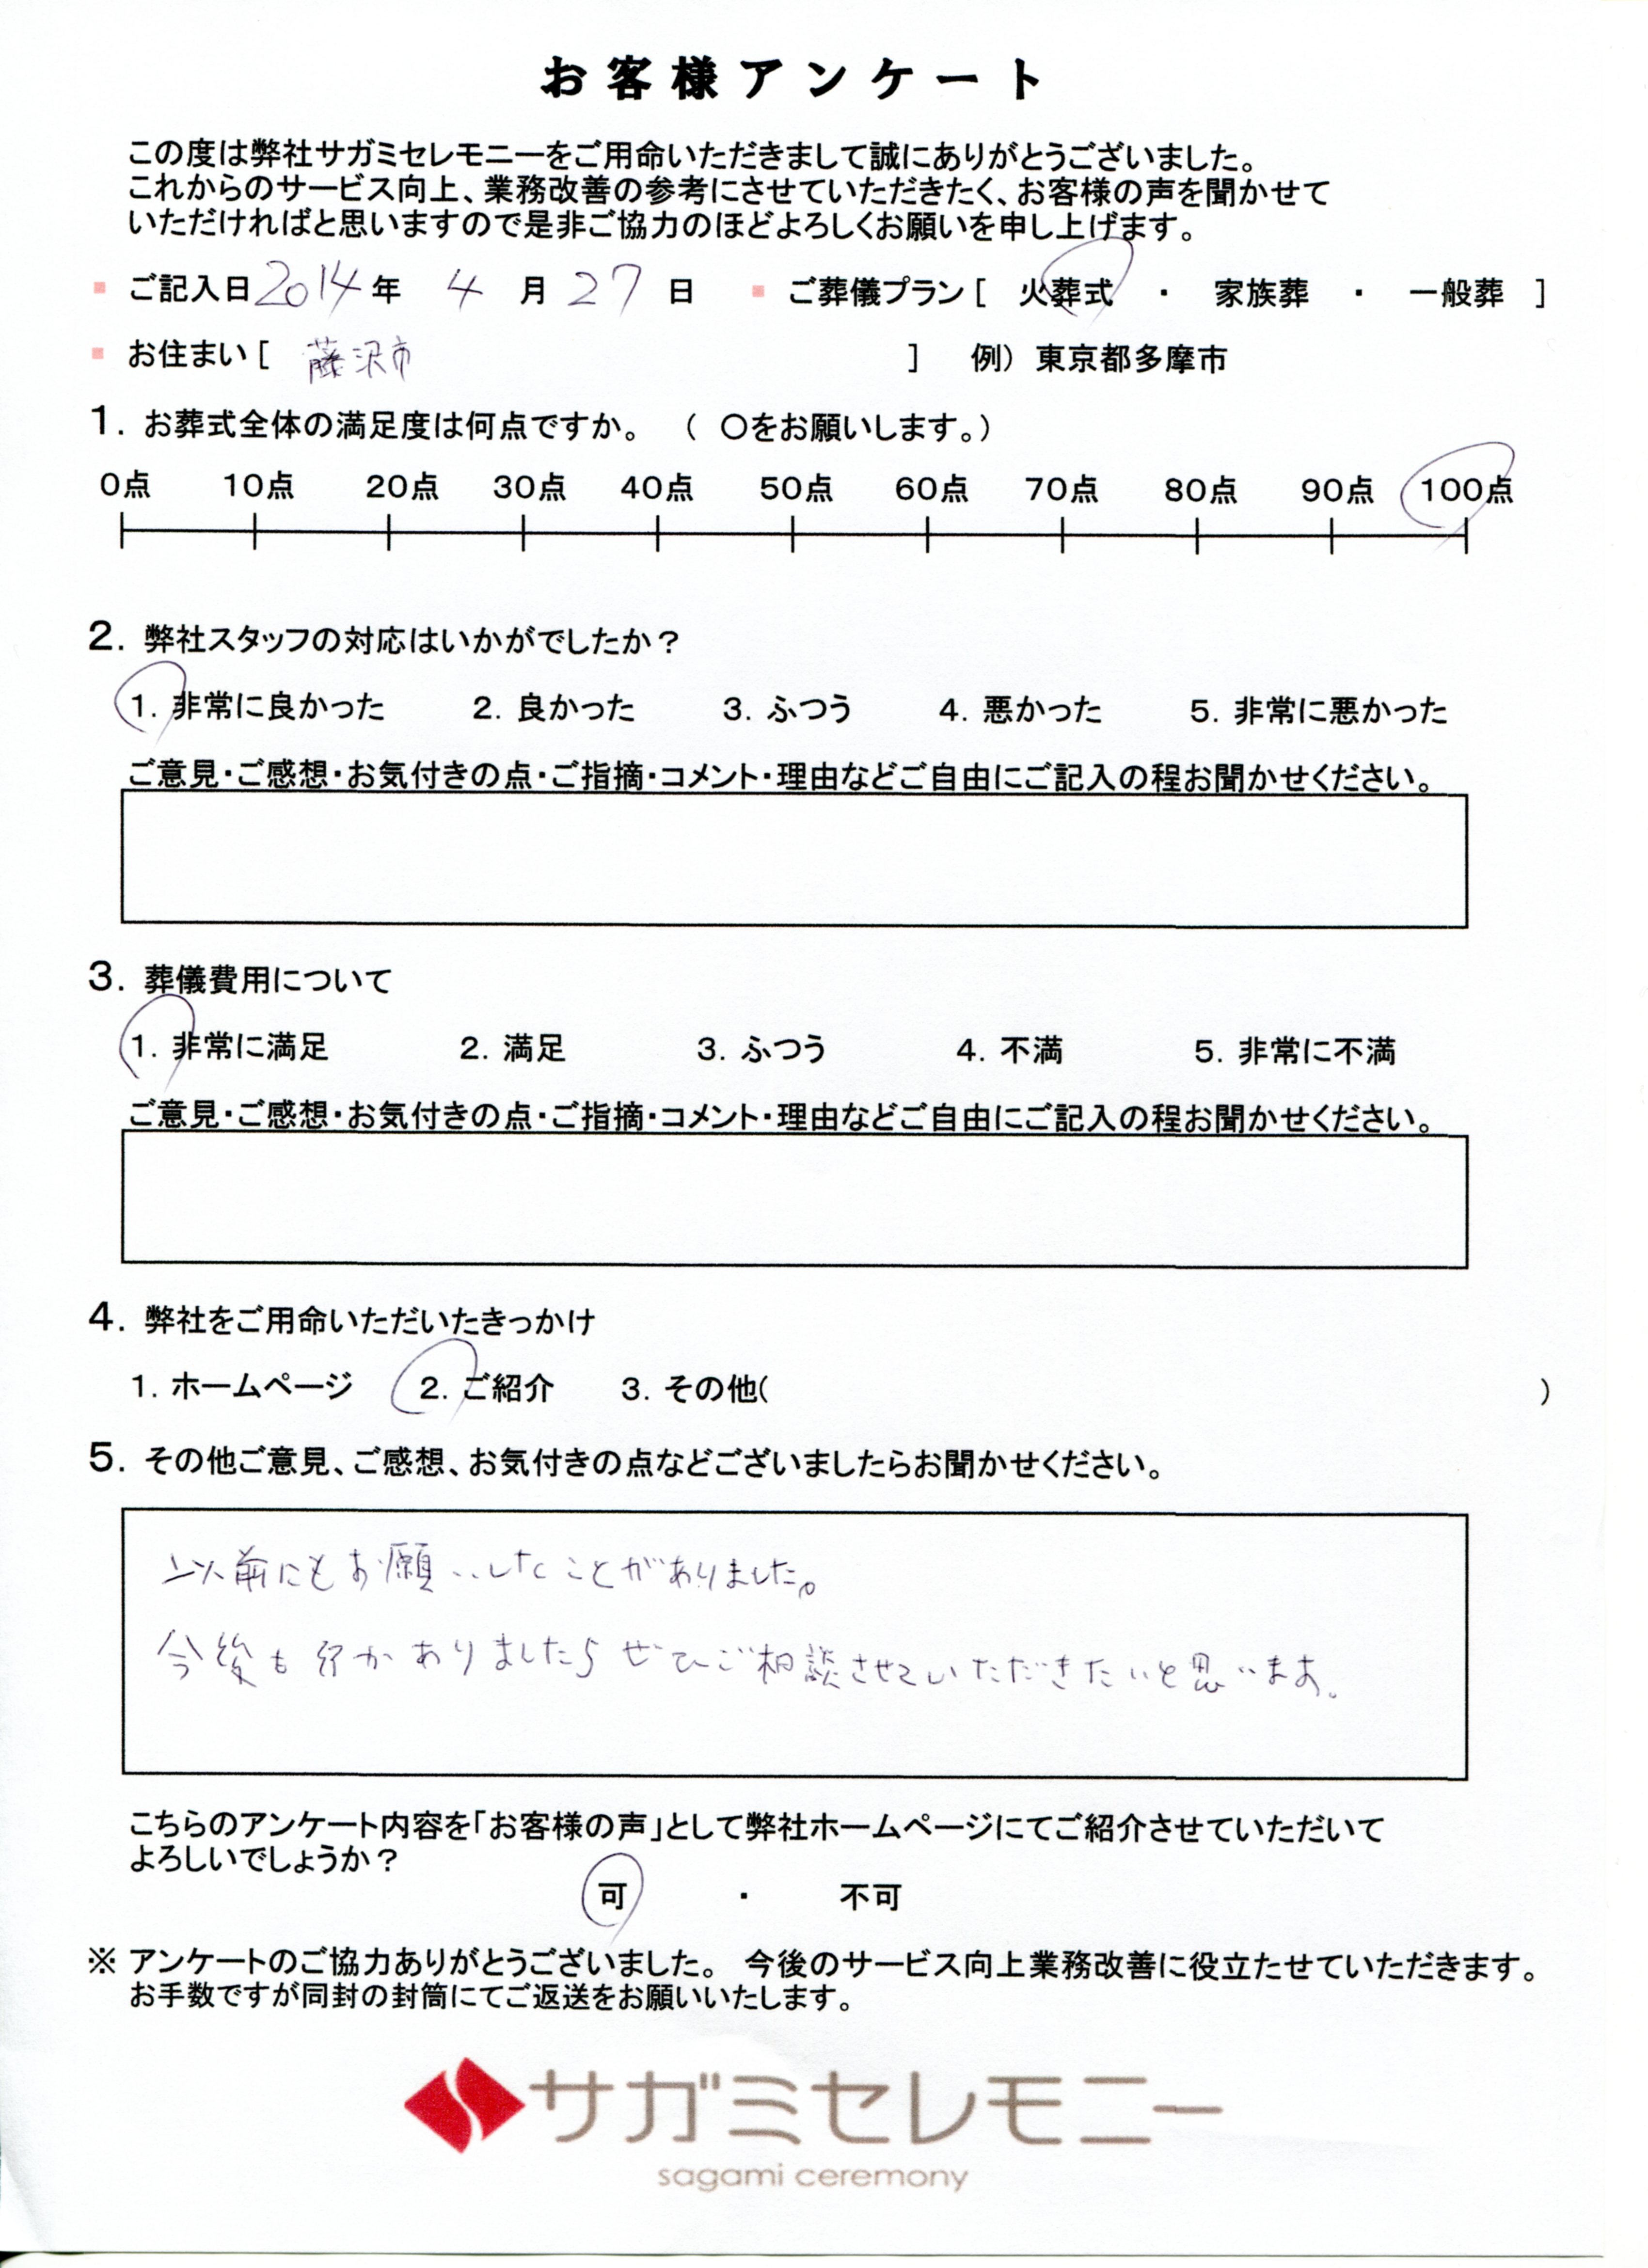 お客様アンケート
この度は弊社サガミセレモニーをご用命いただきまして誠にありがとうございました。
これからのサービス向上、業務改善の参考にさせていただきたく、お客様の声を聞かせて
いただければと思いますので是非ご協力のほどよろしくお願いを申し上げます。
ご記入日 2014年 4月 27日 ご葬儀プラン [ 火葬式 ・ 家族葬 ・ 一般葬 ]
お住まい [ 藤沢市 ] 例） 東京都多摩市
1. お葬式全体の満足度は何点ですか。 （ 〇をお願いします。）
0点 10点 20点 30点 40点 50点 60点 70点 80点 90点 100点
2. 弊社スタッフの対応はいかがでしたか？
1. 非常に良かった 2. 良かった 3. ふつう 4. 悪かった 5. 非常に悪かった
ご意見・ご感想・お気付きの点・ご指摘・コメント・理由などご自由にご記入の程お聞かせください。
3. 葬儀費用について
1. 非常に満足 2. 満足 3. ふつう 4. 不満 5. 非常に不満
ご意見・ご感想・お気付きの点・ご指摘・コメント・理由などご自由にご記入の程お聞かせください。
4. 弊社をご用命いただいたきっかけ
1. ホームページ 2. ご紹介 3. その他( )
5. その他ご意見、ご感想、お気付きの点などございましたらお聞かせください。
以前にもお願いしたことがありました。
今後も かありましたらぜひご相談させていただきたいと思います。
こちらのアンケート内容を「お客様の声」として弊社ホームページにてご紹介させていただいて
よろしいでしょうか？
可 ・ 不可
※ アンケートのご協力ありがとうございました。 今後のサービス向上業務改善に役立たせていただきます。
お手数ですが同封の封筒にてご返送をお願いいたします。
サガミセレモニー
sagami ceremony